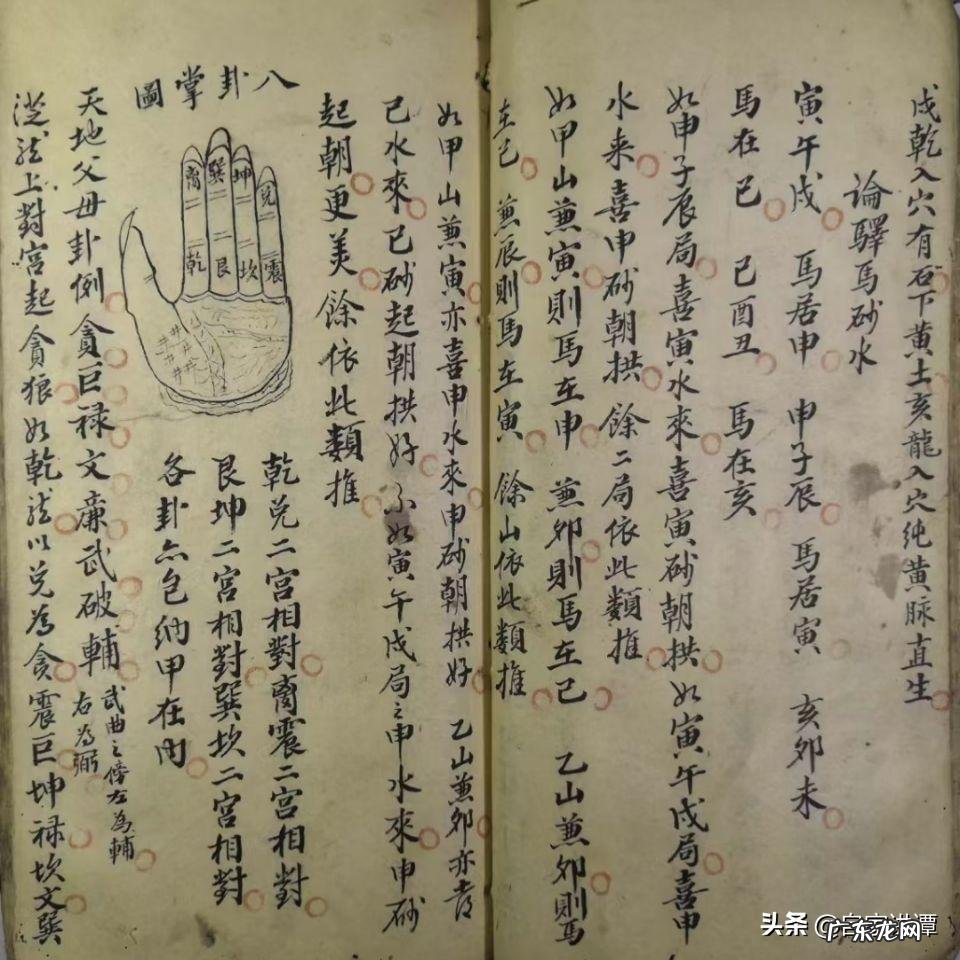 戌乾入穴有石下黄土亥龍入穴純黄脉直生
論驛馬砂水
寅午戌 馬居申 申子辰 馬居寅 亥夘未
馬在巳 巳酉丑 馬在亥
如申子辰局喜寅水來喜寅砂朝拱如寅午戌局喜申
水来喜申砂朝拱 餘二局依此類推
如甲山兼寅則馬在申 兼夘則馬在巳 乙山兼夘則馬
在巳 兼辰則馬在寅 餘山依此類推
如甲山兼寅亦喜申水來申砂朝拱好 乙山兼夘亦喜
巳水來巳砂起朝拱好 不如寅午戌局之申水來申砂
起朝更美餘依此類推
八卦掌圖
離 巽 坤 兌
乾 艮 坎 震
乾兌二宫相對離震二宫相對
艮坤二宫相對巽坎二宫相對
各卦亦包納甲在内
天地父毋卦例 貪巨禄文廉武破輔 武曲之傍左為輔
右為弼
從龍上對宫起貪狼如乾龍以兌為貪震巨坤禄坎文巽
头条 @名家讲谭
广东龙网